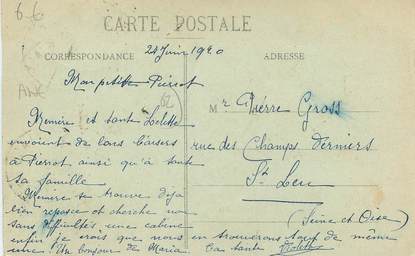 66
CARTE POSTALE
CORRESPONDANCE
24 Juin 1920
ADRESSE
Mon petit Pierrot
62
Mémère et tante
envoient de bons baisers
à Pierrot, ainsi qu'à toute
sa famille
Mémère se trouve déjà
bien reposée et cherche non
sans difficultés, une cabine
enfin je crois que nous en trouverons tout de même
une. Un bonjour de Maria.
Ta tante
Mr Pierre Gross
rue des Champs Derniers
St Leu
(Seine et Oise)